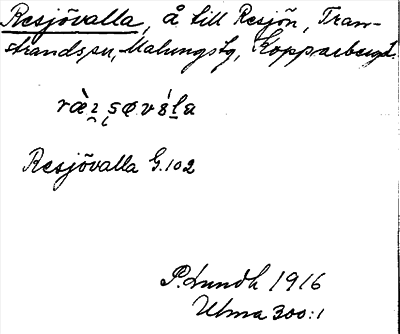 Resjövalla, å till Resjön, Tran-
strands sn, Malungs tg, Kopparbergs l.
Resjövalla G.102
P. Lundh 1916
Ulma 300:1